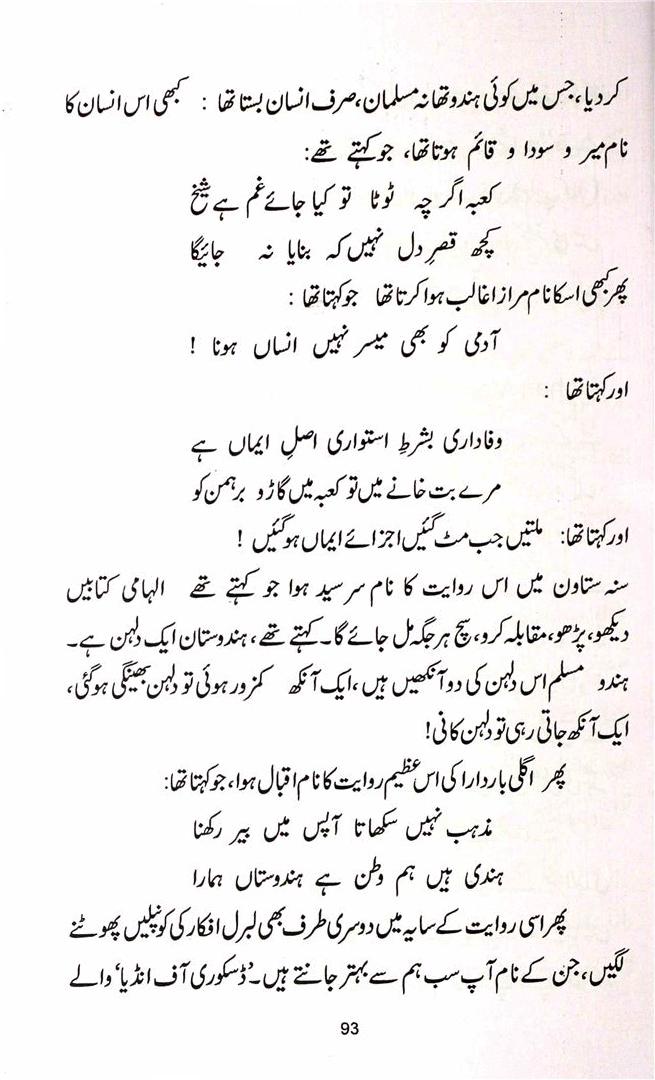 کردیا، جس میں کوئی ہندو تھا نہ مسلمان، صرف انسان بستا تھا : کبھی اس انسان کا
نام میر و سودا و قائم ہوتا تھا، جو کہتے تھے:
کعبہ اگر چہ ٹوٹا تو کیا جائے غم ہے شیخ
کچھ قصرِ دل نہیں کہ بنایا نہ جائیگا
پھر کبھی اسکا نام مرازا غالب ہوا کرتا تھا جو کہتا تھا :
آدمی کو بھی میسر نہیں انساں ہونا !
اور کہتا تھا :
وفاداری بشرطِ استواری اصلِ ایماں ہے
مرے بت خانے میں تو کعبہ میں گاڑو برہمن کو
اور کہتا تھا: ملتیں جب مٹ گئیں اجزائے ایماں ہوگئیں !
سنہ ستاون میں اس روایت کا نام سرسید ہوا جو کہتے تھے الہامی کتابیں
دیکھو، پڑھو، مقابلہ کرو، سچ ہر جگہ مل جائے گا۔ کہتے تھے، ہندوستان ایک دلہن ہے۔
ہندو مسلم اس دلہن کی دو آنکھیں ہیں، ایک آنکھ کمزور ہوئی تو دلہن بھینگی ہوگئی،
ایک آنکھ جاتی رہی تو دلہن کانی!
پھر اگلی بار دارا کی اس عظیم روایت کا نام اقبال ہوا، جو کہتا تھا:
مذہب نہیں سکھاتا آپس میں بیر رکھنا
ہندی ہیں ہم وطن ہے ہندوستاں ہمارا
پھر اسی روایت کے سایہ میں دوسری طرف بھی لبرل افکار کی کونپلیں پھوٹنے
لگیں، جن کے نام آپ سب ہم سے بہتر جانتے ہیں۔ 'ڈسکوری آف انڈیا' والے
93